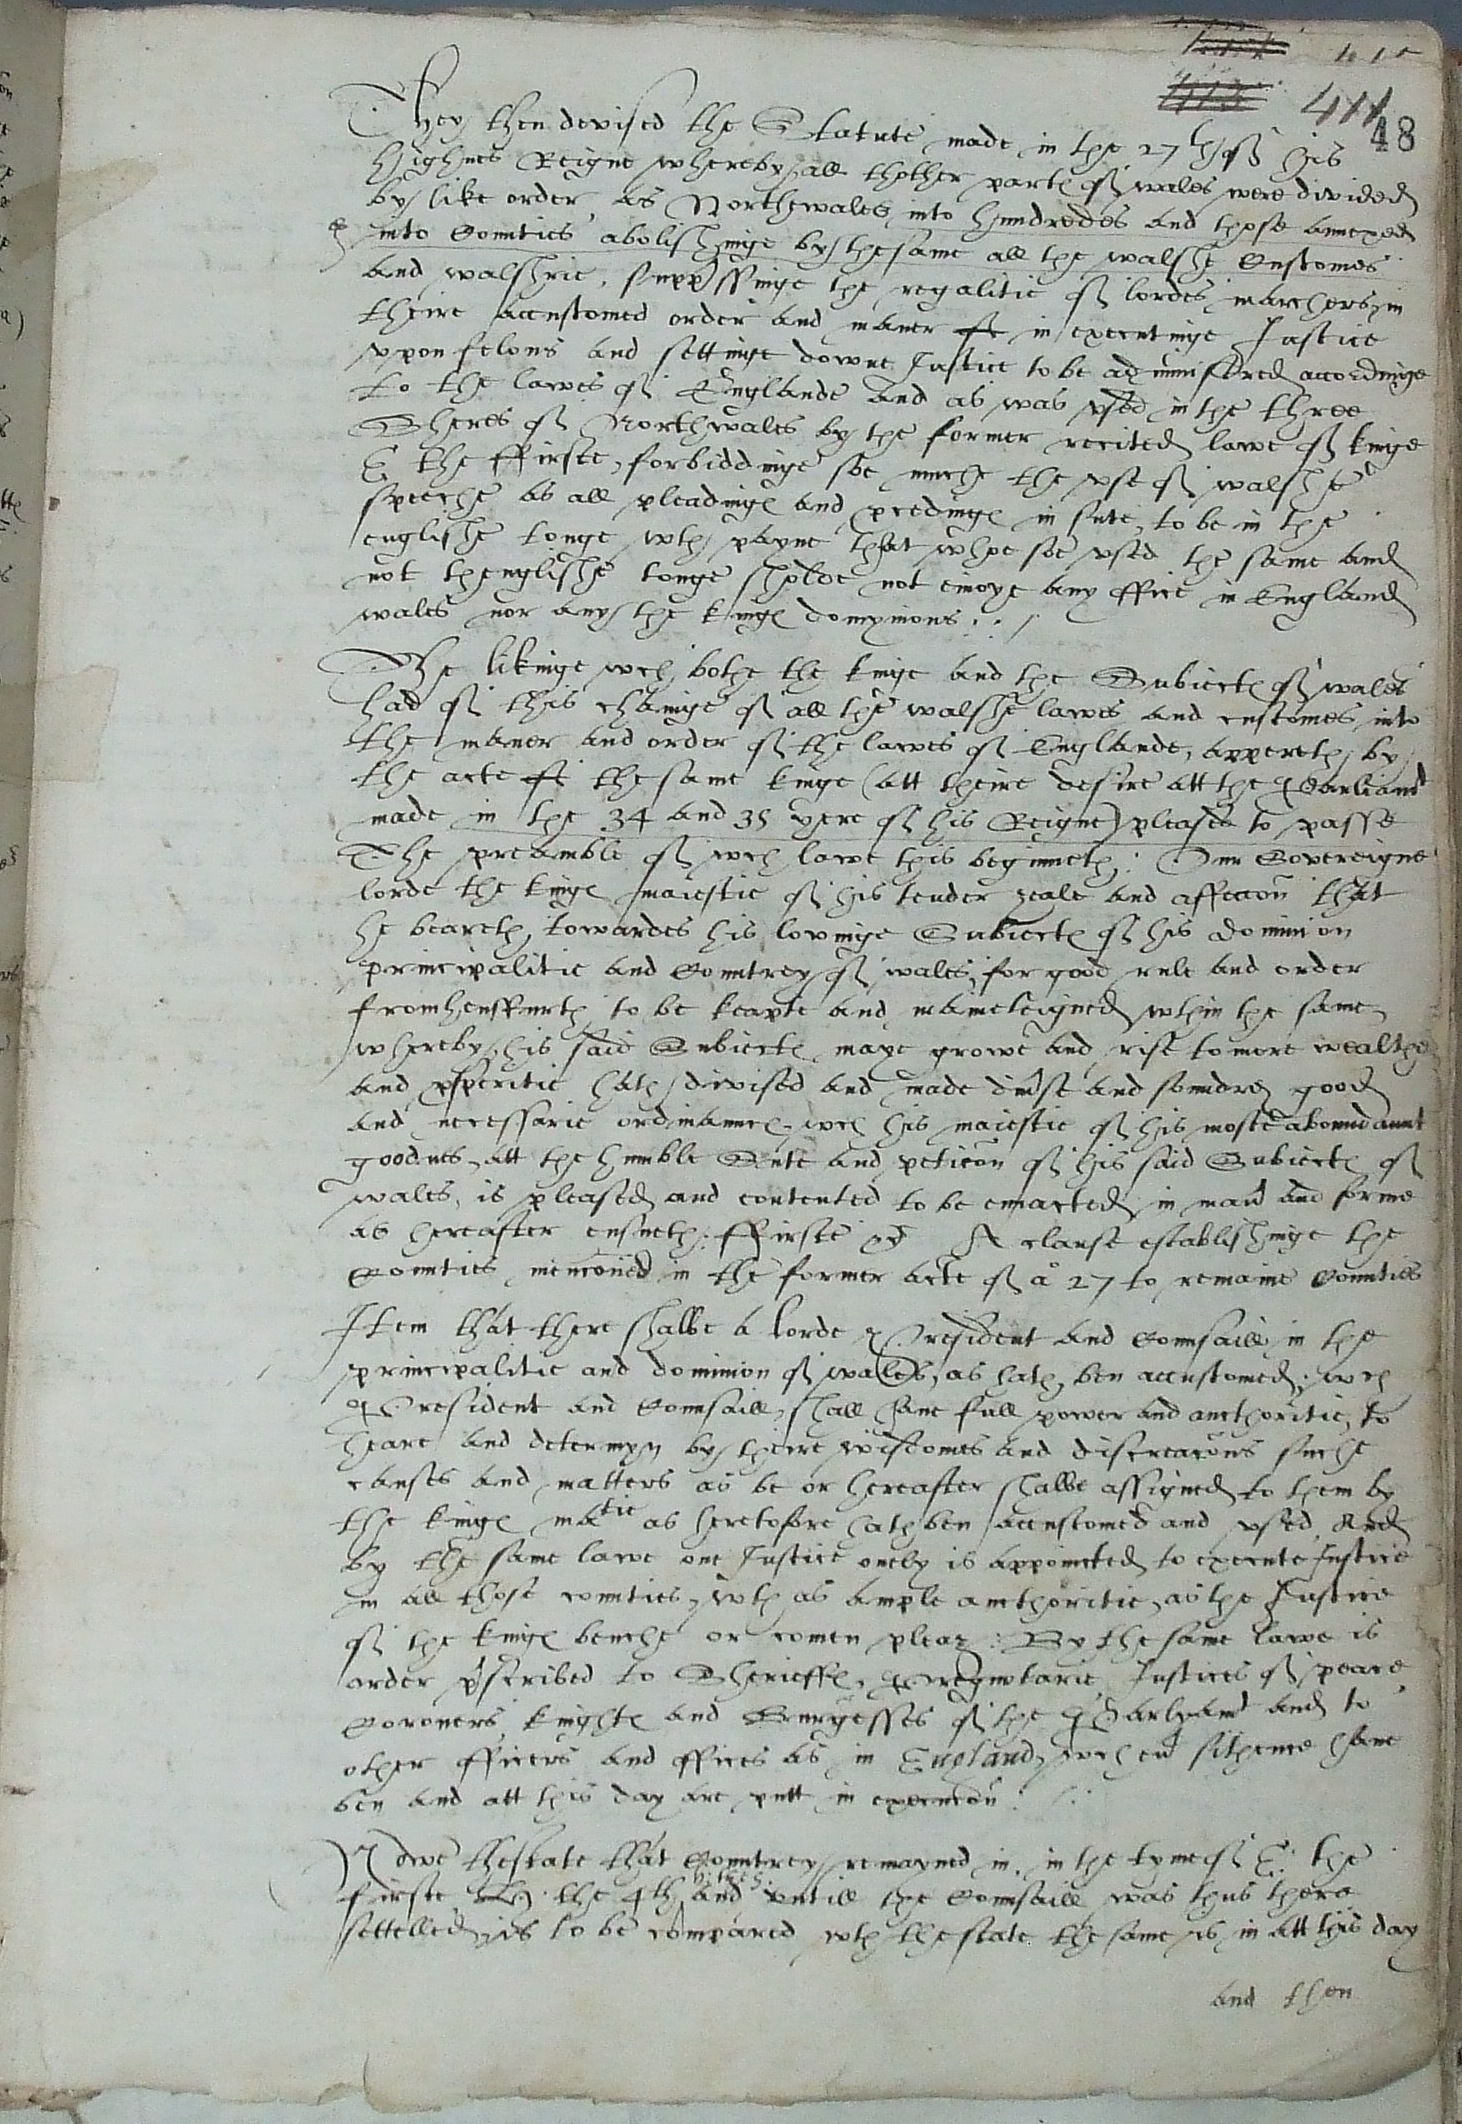 411
48
They then devised the Statute made in the 27th of his
highnes Reigne whereby all thother partes of wales were divided
by like order as Northwales into hundredes and those annexed
into Counties abolishinge by the same all the walshe Customes
and walshrie, supp'ssinge the regalitie of lordes marchers in
theire accustomed order and maner in executinge Justice
vpon felons and settinge downe Justice to be administred accordinge
to the lawes of Englande and as was vsed in the three
Sheres of Northwales by the former recited lawe of kinge
E the ffirste, forbiddinge soe muche the vse of walshe
speeche as all pleadinges and p'cedinges in sute, to be in the
englishe tonge wth payne that whoe soe vsed the same and
not thenglishe tonge sholde not enioye any office in England
wales nor any the kinges domynions
The likinge wch bothe the kinge and the Subiectes of wales
had of this chainge of all the walshe lawes and customes into
the maner and order of the lawes of Englande, appereth by
the acte the same kinge (att theire desire att the Parliamt
made in the 34 and 35 yere of his Reigne) pleased to passe
The preamble of wch lawe this beginneth: Our Sovereigne
lorde the kinges maiestie of his tender zeale and affeccon that
he beareth towardes his lovinge Subiectes of his dominion
principalitie and Countrey of wales, for good rule and order
fromhensfurth to be keapte and mainteigned wthin the same
whereby his said Subiectes maye growe and rise to more wealthe
and p'speritie hath divised and made div'se and soundry good
and necessarie ordinaunces wch his maiestie of his moste aboundaunt
goodnes att the humble Sute and peticon of his said Subiectes of
wales, is pleased and contented to be enacted in man' and forme
as hereafter ensueth: ffirste A clause establishinge the
Counties mencioned in the former acte of ao 27 to remaine Counties
Item that there shalbe a lorde President and Counsaill in the
principalitie and dominion of wales, as hath ben accustomed, wch
President and Counsaill shall have full power and aucthoritie to
heare and determyn by theire wisdomes and discreacons suche
causes and matters as be or hereafter shalbe assigned to them by
the kinges matie as heretofore hath ben accustomed and vsed And
by the same lawe one Justice onely is appoincted to execute Justice
in all those counties, wth as ample aucthoritie as the Justice
of the kinges benche or comen pleaz: By the same lawe is
order p'scribed to Sherieffes, Justices of peace
Coroners knightes and Burgesses of the Parlyamt and to
other officers and offices as in England, wch ev' sithence have
ben and att this day are putt in execucon
Nowe thestate that Countrey remayned in in the tyme of E: the
firste the 4th and vntill the Counsaill was thus there
settelled, is to be compared wth thestate the same is in att this day
and then